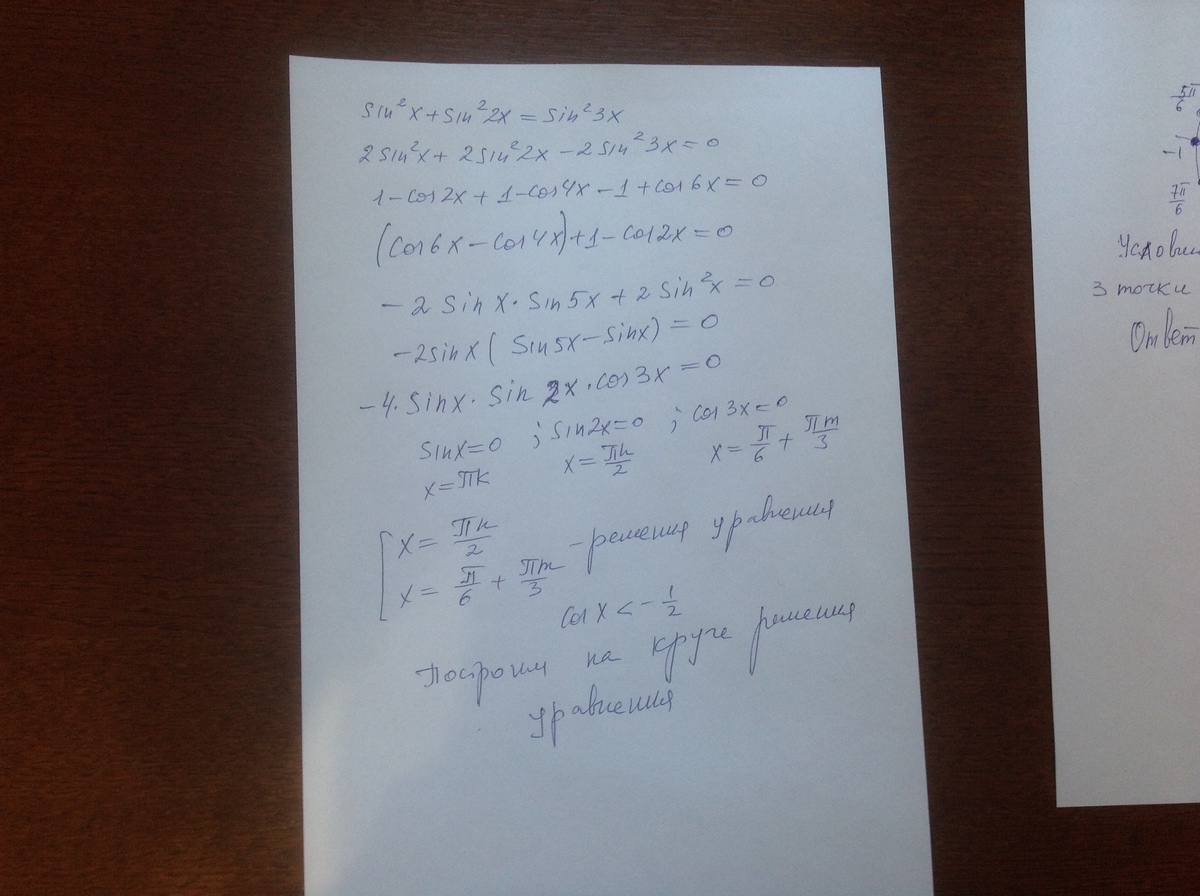 sin²x + sin²2x = sin²3x
2sin²x + 2sin²2x − 2sin²3x = 0
1 − cos2x + 1 − cos4x − 1 + cos6x = 0
(cos6x − cos4x) + 1 − cos2x = 0
−2 sinx · sin5x + 2 sin²x = 0
−2sinx (sin5x − sinx) = 0
−4 · sinx · sin 2x · cos3x = 0
sinx = 0 ; sin2x = 0 ; cos3x = 0
x = πk x = πn/2 x = π/6 + πm/3
[ x = πn/2
x = π/6 + πm/3 − решения уравнения
cosx < −1/2
Построим на круге решения
уравнения
5π/6
−1
7π/6
3 точки
Ответ